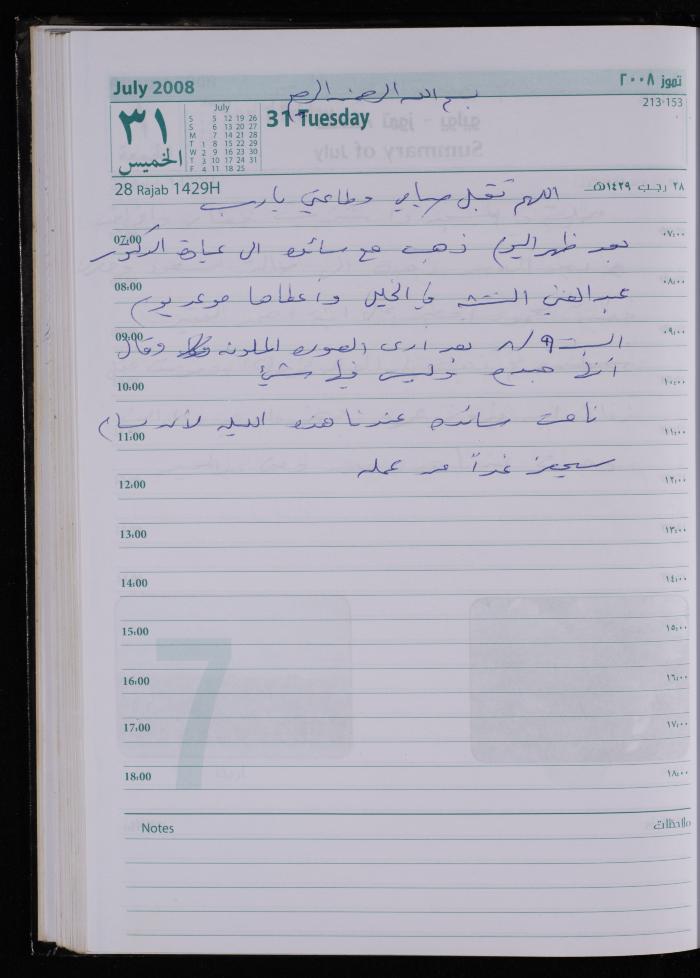 July 2008
تموز ٢٠٠٨
بسم الله الرحمن الرحيم
213-153
٣١
الخميس
July
S 5 12 19 26
S 6 13 20 27
M 7 14 21 28
T 1 8 15 22 29
W 2 9 16 23 30
T 3 10 17 24 31
F 4 11 18 25
31 Tuesday
28 Rajab 1429H
٢٨ رجب ١٤٢٩هـ
اللهم تقبل صيامي وطاعتي يا رب
07:00 ٠٧:٠٠
بعد ظهر اليوم ذهبت مع سائده الى عيادة الدكتور
08:00 ٠٨:٠٠
عبد الغني في الخليل وأعطاها موعد يوم
09:00 ٠٩:٠٠
السبت ٩/٨ بعد أن رأى الصوره الملونه وقال
10:00 ١٠:٠٠
أنها جيده وليس فيها شيء
11:00 ١١:٠٠
نامت سائده عندنا هذه الليله لأن بسام
12:00 ١٢:٠٠
سيجيز غداً من عمله
13:00 ١٣:٠٠
14:00 ١٤:٠٠
15:00 ١٥:٠٠
16:00 ١٦:٠٠
17:00 ١٧:٠٠
18:00 ١٨:٠٠
7
Notes
ملاحظات